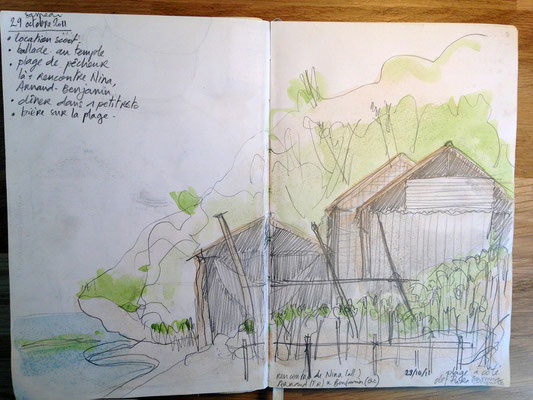 samedi
29 octobre 2011
• location scoot.
• ballade au temple
• plage de pêcheur
là : rencontre Nina,
Arnaud - Benjamin,
• dîner dans 1 petit resto
• bière sur la plage -
rencontre de Nina (all)
Arnaud & Benjamin
29/10/11
plage à côté
de